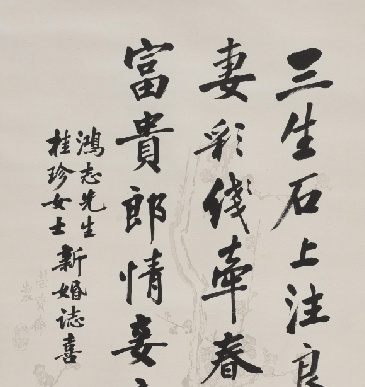 三生石上注良
妻彩綫牽春
富貴郎情妾
鴻志先生
桂珍女士
新婚誌喜